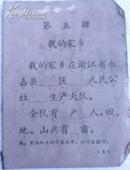 第五課
我的家乡
我的家乡在浙江省永
嘉县 区 人民公
社 生产大队。
全队有 户 人,田、
地、山共有 亩。